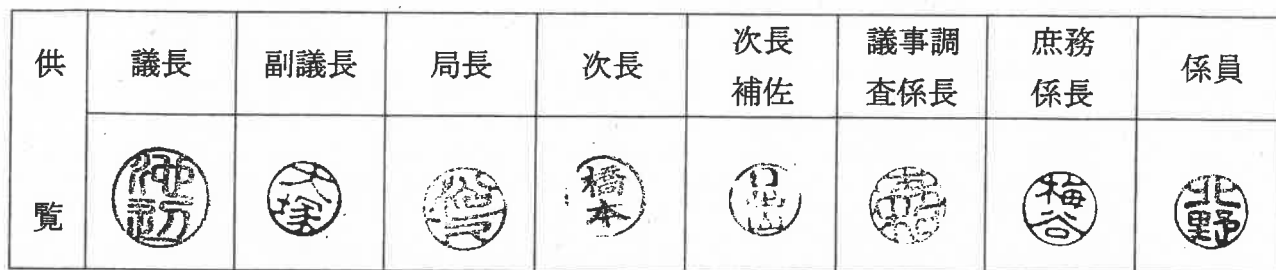 供覧
議長
副議長
局長
次長
次長
補佐
議事調
査係長
庶務
係長
係員
大塚
橋本
梅谷
北野